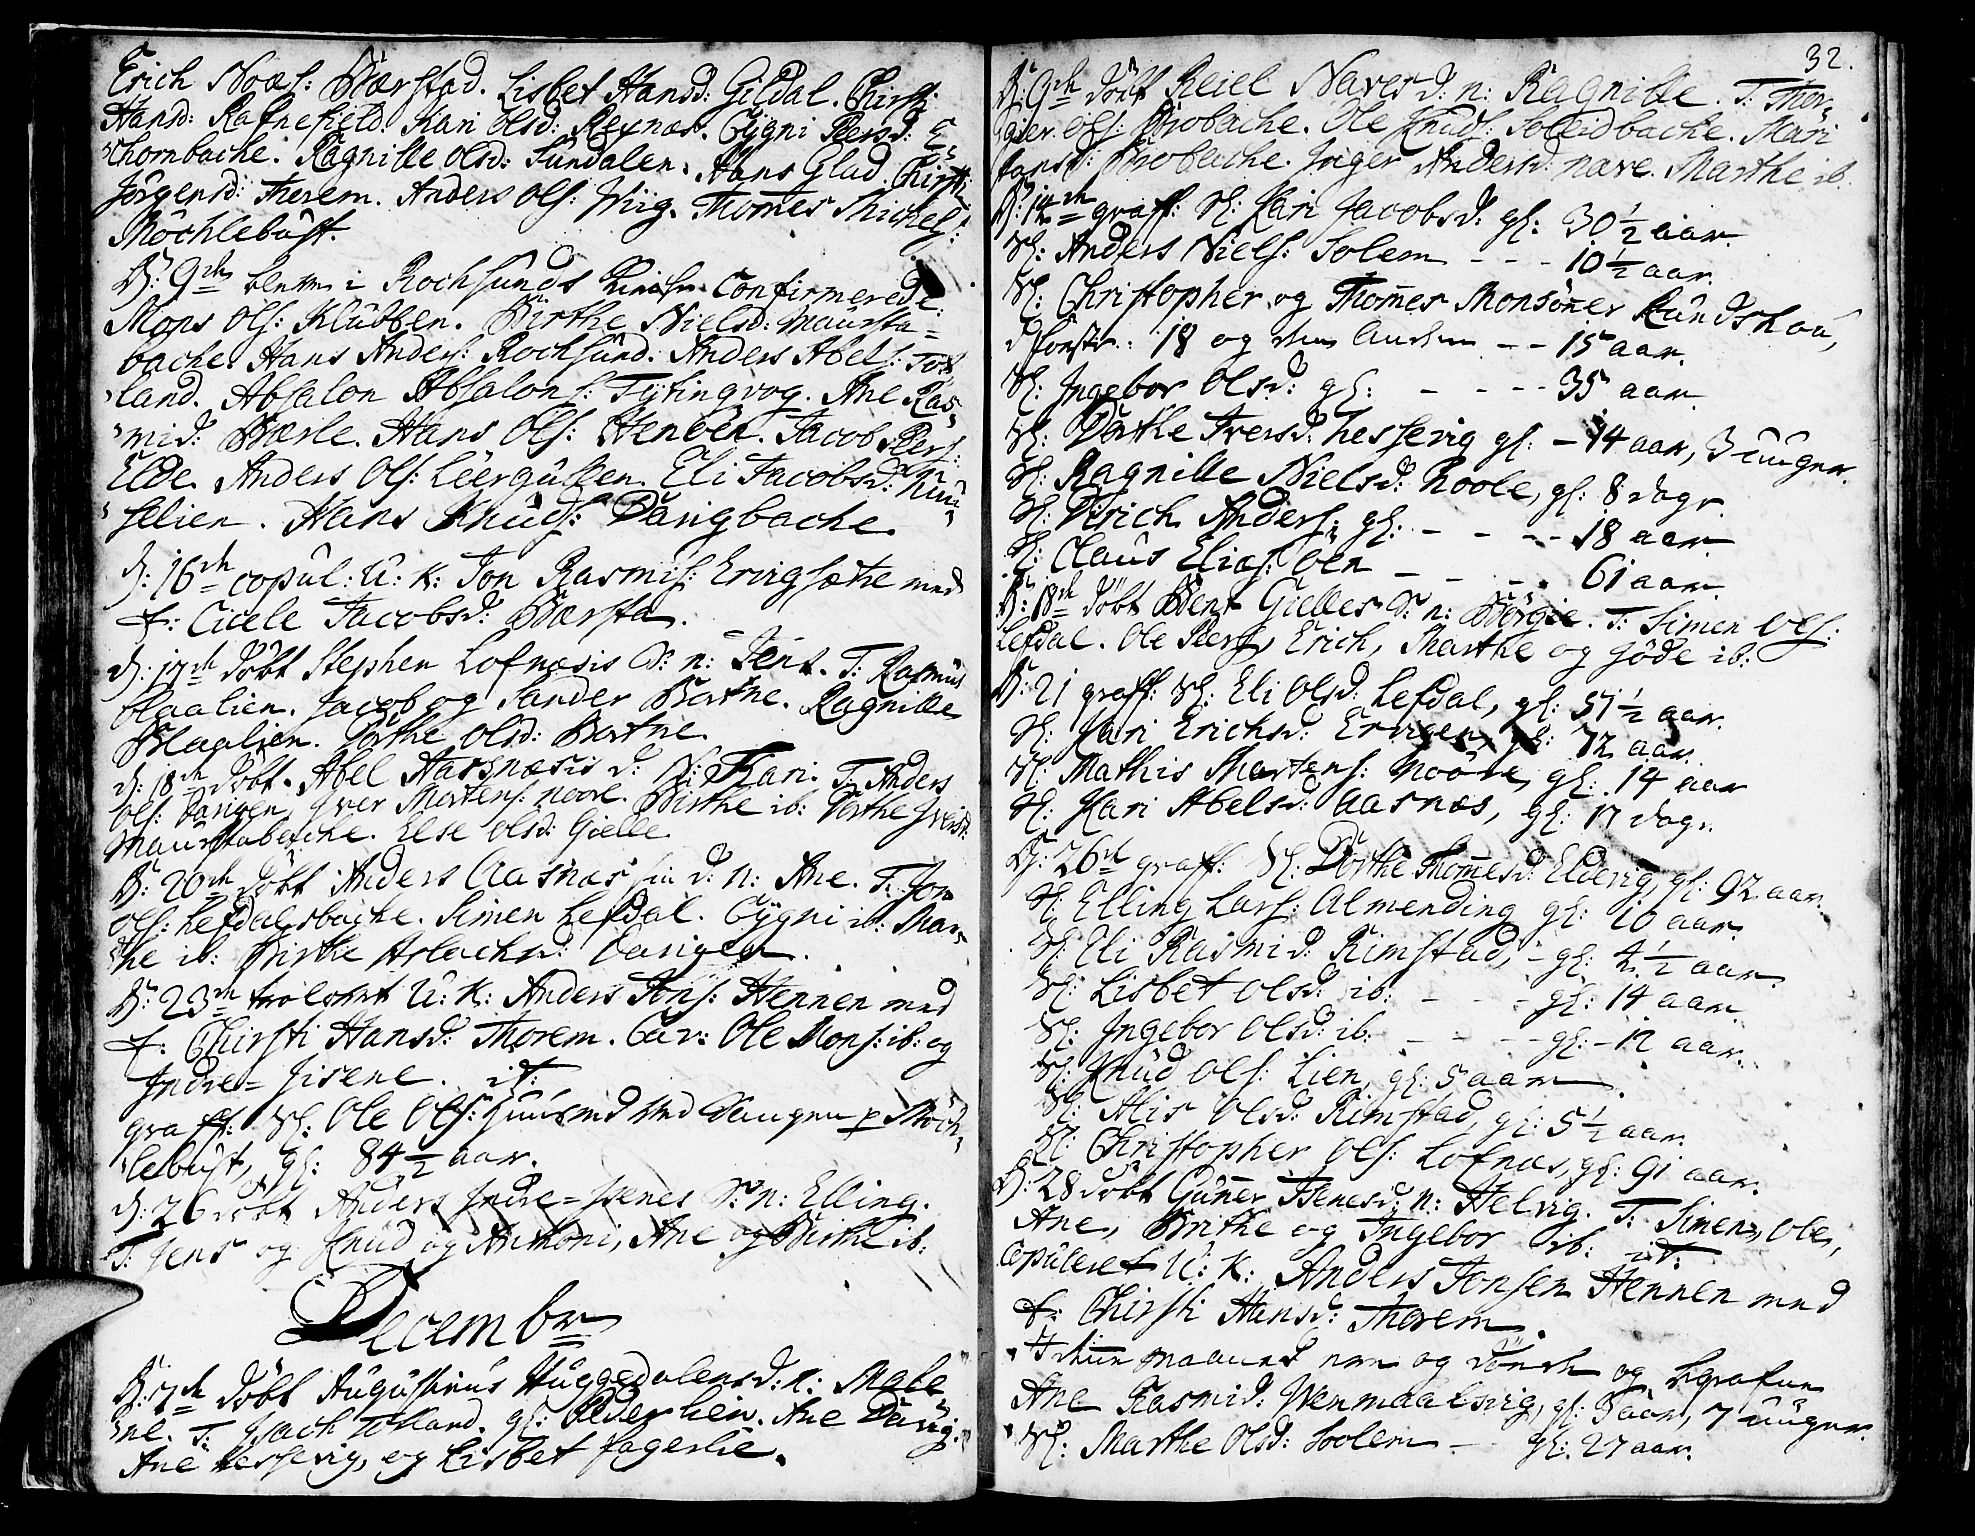 Erich Noæs: Bærstad. Lisbet Hansd: Gildal. Chirsti
Hansd: Rafnefield. Kari Olsd: Røynæs. Gygni Persd: E,,
,,thornbache. Ragnille Olsd: Sundalen. Hans Glad. Chirsti
Jørgensd: Therem. Anders Ols: Wiig. Thomes Michels:
Møchlebust.
D: 9de blev i Rochsunds Kirche Confirmerede
Mons Ols: Klubben. Birthe Nielsd: Maursta=
bache. Hans Anders: Rochsund. Anders Abels: Tot
,,land. Absalon Absalons: Tytingvog. Ane Ras,,
,,mid: Bærle. Hans Ols: Henden. Jacob Pers:
Elde. Anders Ols: Leergullen. Eli Jacobsd: Huu,,
,,selien. Hans Knuds: Davigbache.
d: 16de copul: U: K: Jon Rasmis: Ervigsætre med
f: Cicele Jacobsd: Bærsta.
d: 17de døbt Stephen Lofnæsis S: n: Jens. T: Rasmus
Blaalien. Jacob og Sander Bortne. Ragnille
Blaalien. Dorthe Olsd: Bortne.
d: 18de døbt Abel Aasnæsis d: N: Kari. T: Anders
Ols: Davigen, Iver Mortens: Noore. Birthe ib: Dorthe Iversd:
Maurstabache. Else Olsd: Gielle.
D: 20de døbt Anders Aasnæs sin d: n: Ane. T: Jon
Ols: Lefdalsbache. Simen Lefdal. Gygni ib: Mar,,
,,the ib: Birthe Aslachsd: Davigen.
D: 23de trolovet U: K: Anders Jons: Hennen med
f. Chirsti Hansd: Thorem. Cav: Ole Mons: ib: og
Indre= Iisene. it:
graff: Sl: Ole Ols: Huusmand ved Vaagen p Møch,,
,,lebust, gl: 84 1/2 aar.
d: 26 døbt Anders Indre=Isenes S: n: Elling.
T: Jens og Knud og Anthoni, Ane og Birthe ib:
Decembr
D: 7de døbt Augustinus Huggedalens d: n: Male
,,ne. T: Isach Totland. gl: Peder Lien. Ane Davig.
Ane Hessevig, og Lisbet Fagerlie.
32.
D: 9de døbt Reiel Naves d: n: Ragnille. T: Thor,,
,,ger Ols: Brobache. Ole Knuds: Soleidbache. Mari
Hansd: Brobache. Inger Andersd: Nave. Marthe ib.
D: 14de graff: Sl: Kari Jacobsd: gl: 30 1/2 aar.
Sl: Anders Niels: Solem - - - 10 1/2 aar.
Sl: Christopher og Thomes Monsøner Rundskou,
d første: 18 og den Anden - - 15 aar.
Sl: Ingebor Olsd: gl: - - - - 35 aar.
Sl: Dorthe Iversd: Hessevig gl: - 14 aar, 3 uuger.
Sl: Ragnille Nielsd: Roole, gl: 8 dage.
Sl: Dirich Anders: gl: - - - - 18 aar.
Sl: Claus Elias: Øen - - - - 61 aar.
D: 18de døbt Bent Gielles S: n: Børgie. T: Simen Ols:
Lefdal. Ole Pers, Erich, Marthe og Jøde ib:
D: 21 graff: Sl: Eli Olsd: Lefdal, gl: 51 1/2 aar.
Sl: Kari Erichsd: Ervigen, gl: 72 aar.
Sl: Mathis Mortens: Noore, gl: 14 aar
Sl: Kari Abelsd: Aasnæs, gl: 17 dage.
D: 26de graff: Sl: Dorthe Thomesd: Eldevig, gl: 92 aar.
Sl: Elling Lars: Almending gl: 10 aar.
Sl: Eli Rasmid: Rimstad, - gl: 4 1/2 aar.
Sl: Lisbet Olsd: ib: - - - gl: 14 aar.
Sl: Ingebor Olsd: ib: - - - gl: - 12 aar.
Sl: Knud Ols: Lien, gl: 5 aar
Sl: Alis Olsd: Rimstad, gl: 5 1/2 aar.
Sl: Christopher Ols: Lofnæs, gl: 91 aar.
D: 28 døbt Gunner Isenes d: n: Helvig. T: Simen, Ole,
Ane, Birthe og Ingebor ib: it:
Copuleret U: K: Anders Jonsen Hennen med
f: Chirsti Hansd: Thorem.
I denne maaned og døde og begrafne
Ane Rasmid: Wenmaalsvig, gl: 3 aar, 7 uuger.
Sl: Marthe Olsd: Soolem - gl: 27 aar.